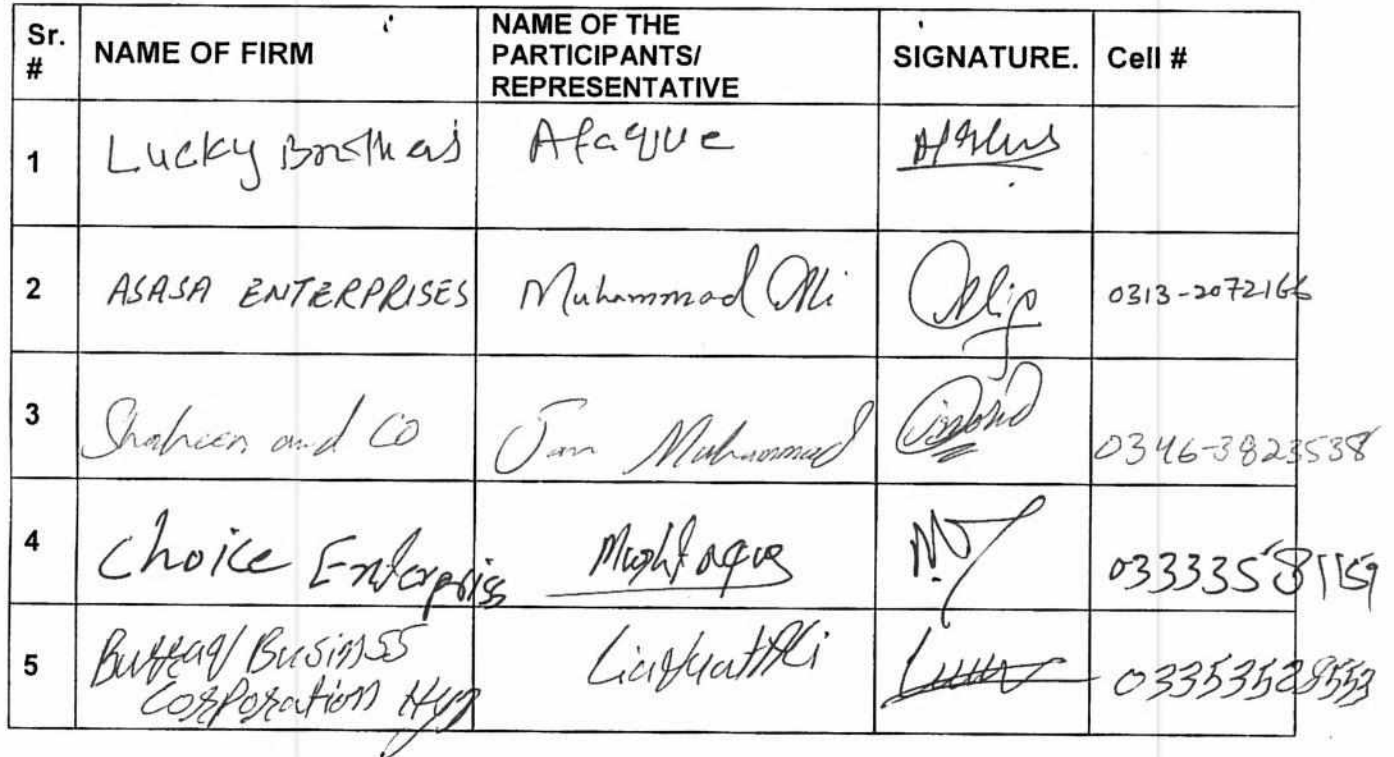 Sr. # NAME OF FIRM NAME OF THE PARTICIPANTS/ REPRESENTATIVE SIGNATURE. Cell #
1 Lucky Brothers Afaque
2 ASASA ENTERPRISES Muhammad Ali 0313-2072166
3 Shaheen and Co Jan Muhammad 0346-3823538
4 Choice Enterpriss Mushtaque 03333581159
5 Business Liaquat Ali 03353528553
Corporation Hyd